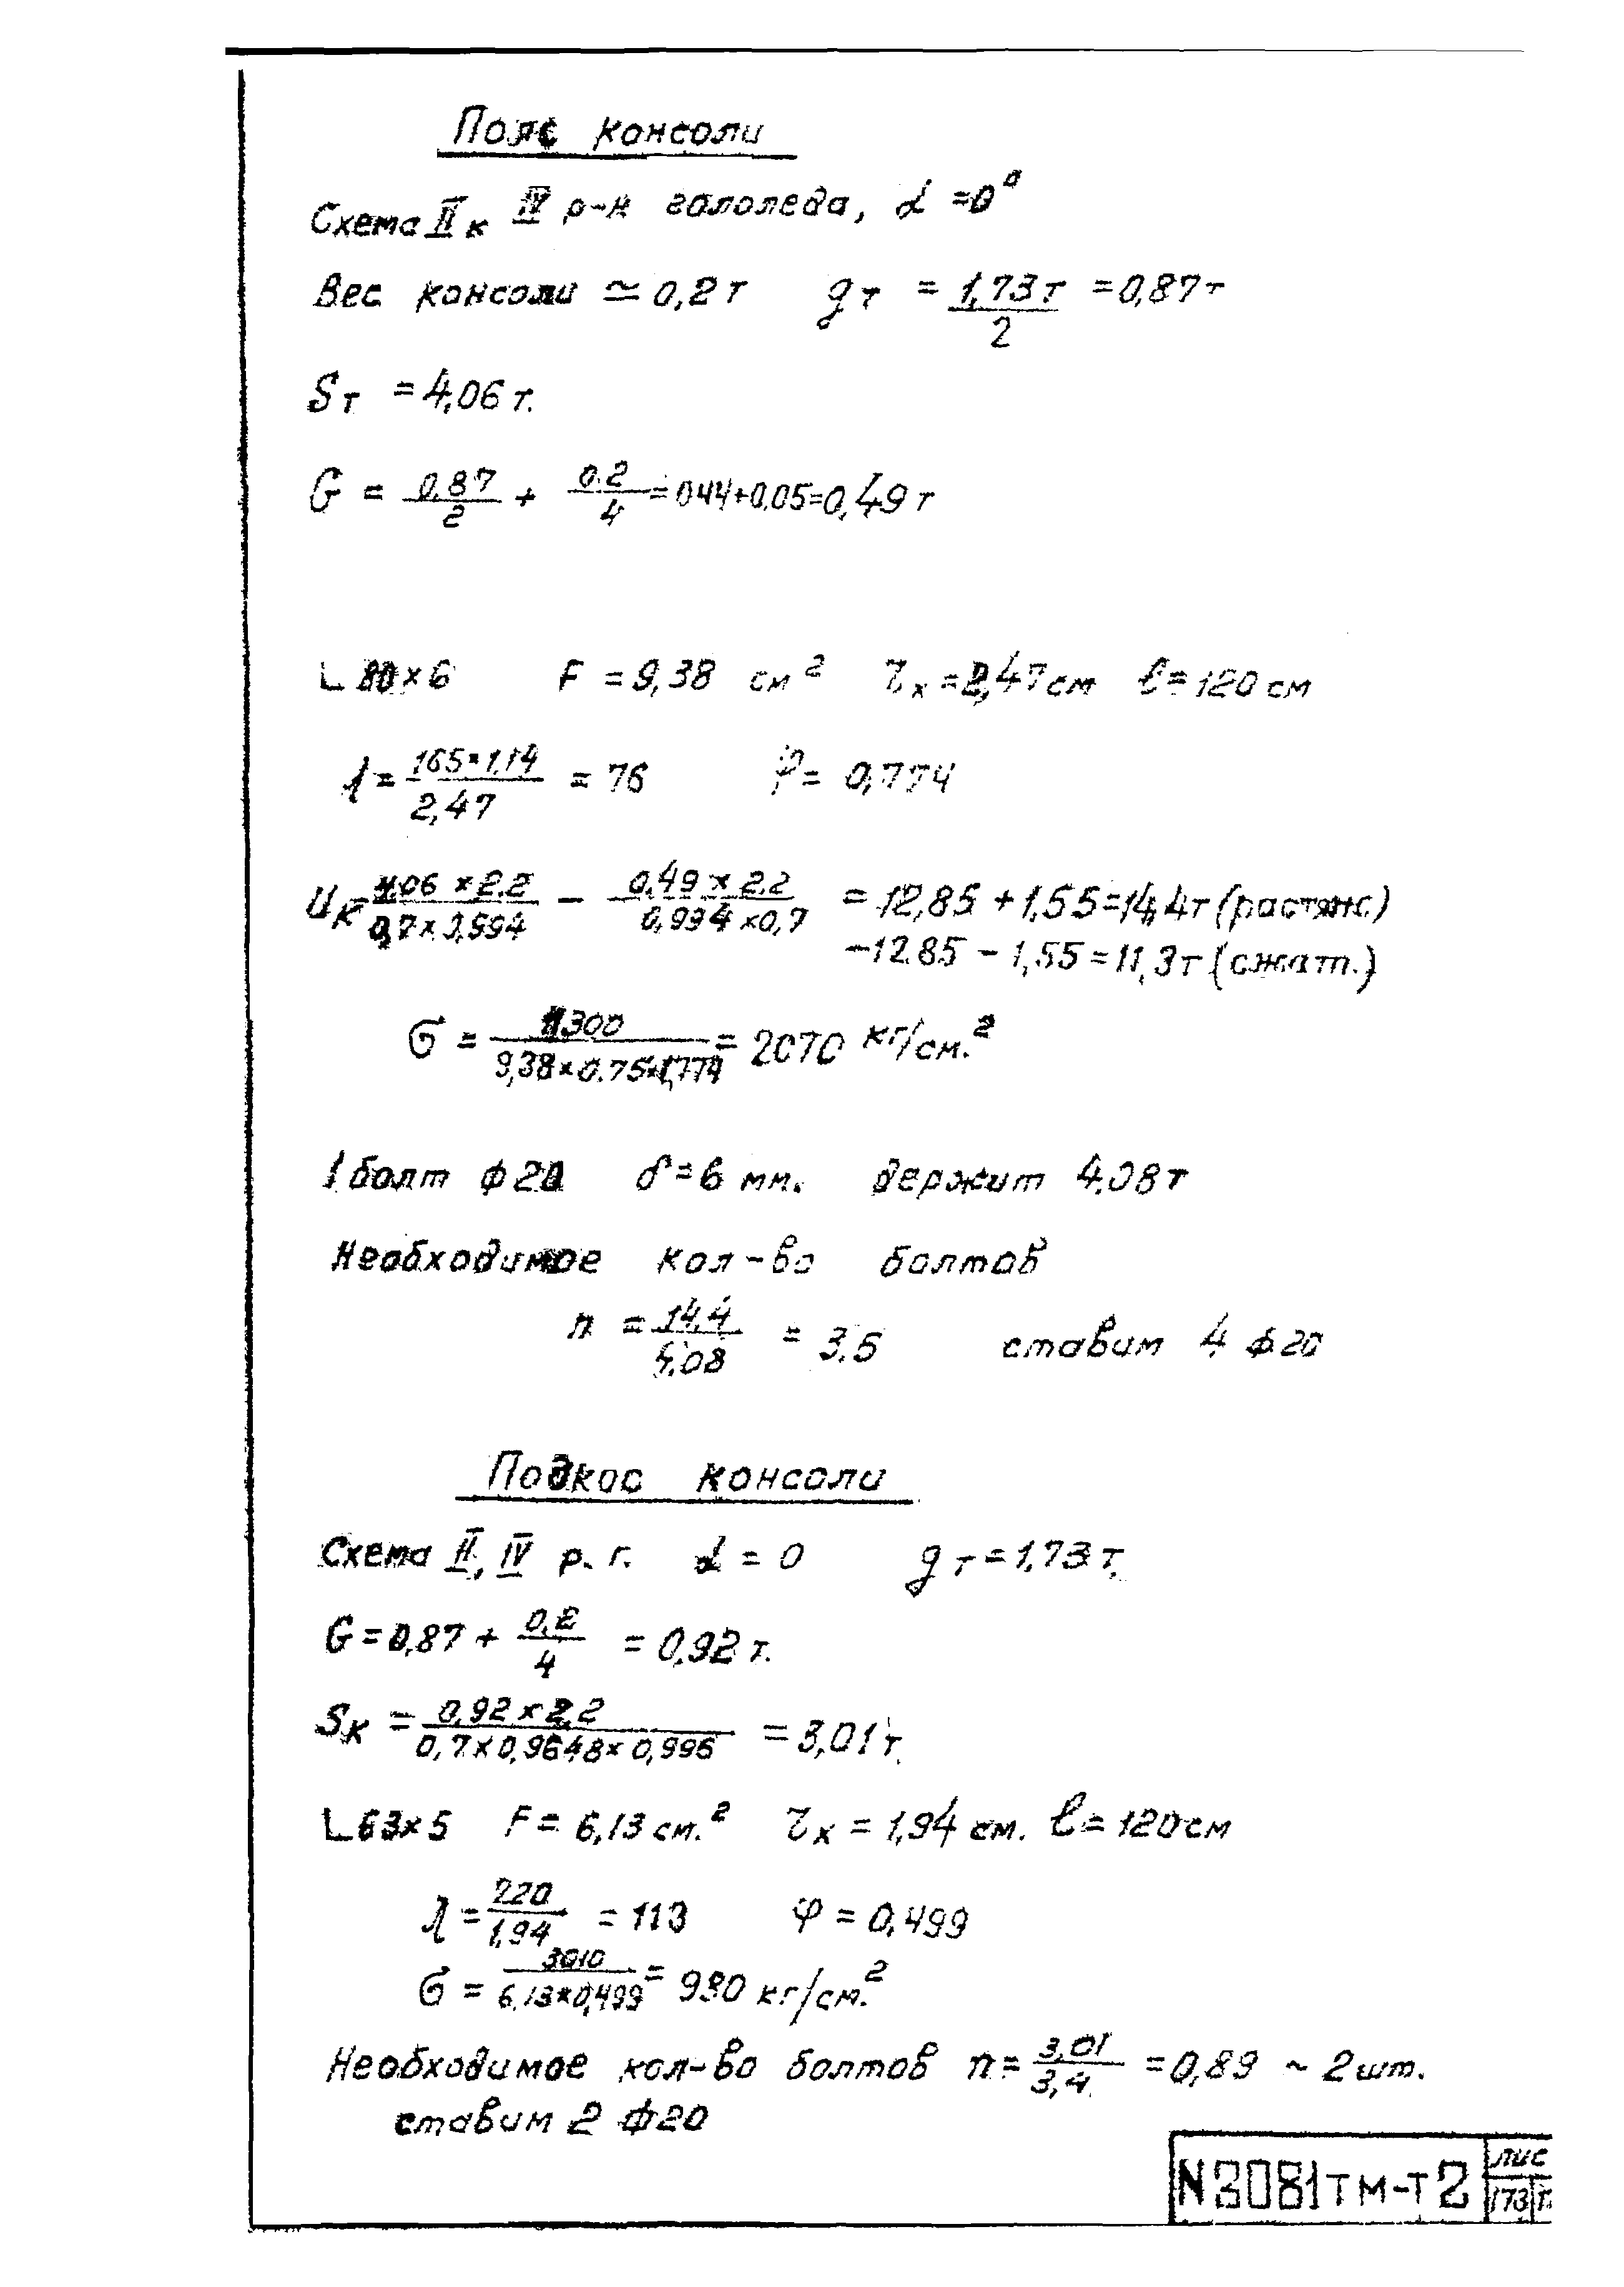 Пояс консоли
Схема IIк IV р-н гололеда, α = 0°
Вес консоли ≃ 0,2 т gт = 1,73т/2 = 0,87т
Sт = 4,06 т.
G = 0,87/2 + 0,2/4 = 0,44 + 0,05 = 0,49 т
∟ 80×6 F = 9,38 см² ℸx = 2,47см ℓ = 120 см
λ = 165×1,14/2,47 = 76 φ = 0,774
Uк = 4,06×2,2/0,7×0,994 − 0,49×2,2/0,994×0,7 = 12,85 + 1,55 = 14,4т (растянс)
−12,85 − 1,55 = 11,3т (сжат.)
σ = 11300/9,38×0,75×0,774 = 2070 кг/см.²
1 болт ф20 δ = 6 мм. держит 4,08т
Необходимое кол-во болтов
n = 14,4/4,08 = 3,5 ставим 4 ф20
Подкос консоли
Схема II, IV р. г. α = 0 gт = 1,73 т.
G = 0,87 + 0,2/4 = 0,92 т.
Sк = 0,92×2,2/0,7×0,9648×0,996 = 3,01 т.
∟63×5 F = 6,13 см.² ℸx = 1,94 см. ℓ = 120см
λ = 220/1,94 = 113 φ = 0,499
σ = 3010/6,13×0,499 = 980 кг/см.²
Необходимое кол-во болтов n = 3,01/3,4 = 0,89 ~ 2 шт.
ставим 2 ф20
N3081тм-т2
лис
173